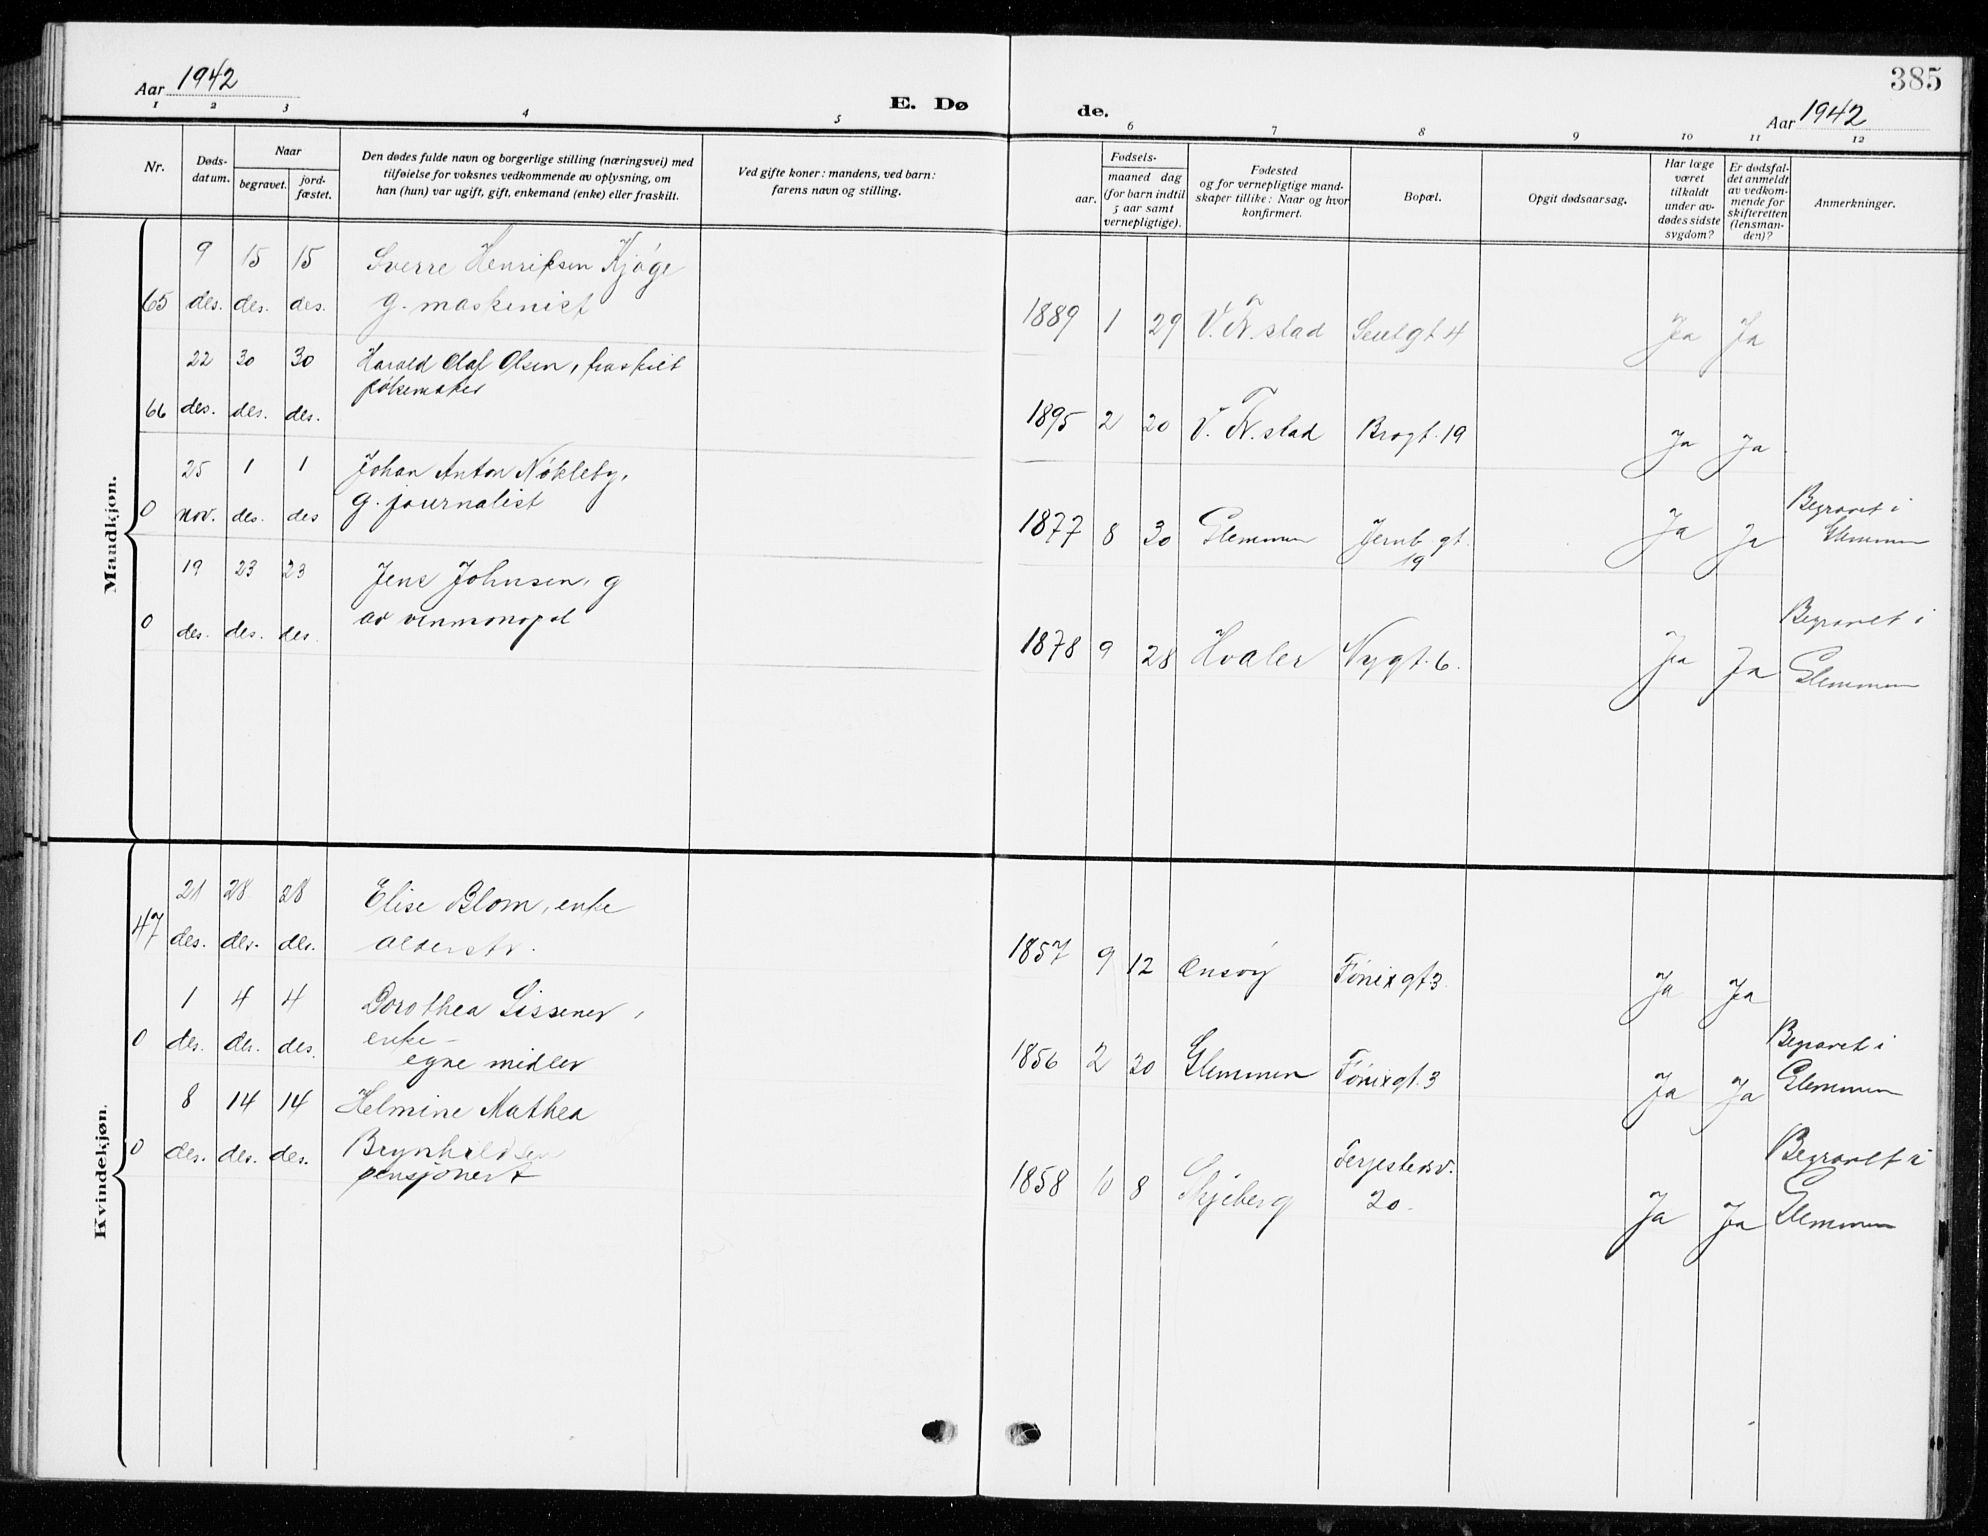 385
Aar 1942
E. Dø
de.
Aar 1942
1 2 3 4 5 6 7 8 9 10 11 12
Nr.
Døds-
datum.
Naar
begravet.
jord-
fæstet.
Den dødes fulde navn og borgerlige stilling (næringsvei) med
tilføielse for voksnes vedkommende av oplysning, om
han (hun) var ugift, gift, enkemand (enke) eller fraskilt.
Ved gifte koner: mandens, ved barn:
farens navn og stilling.
Fødsels-
aar.
maaned dag
(for barn indtil
5 aar samt
vernepligtige).
Fødested
og for vernepligtige mand-
skaper tillike: Naar og hvor
konfirmert.
Bopæl.
Opgit dødsaarsag.
Har læge
været
tilkaldt
under av-
dødes sidste
sygdom?
Er dødsfal-
det anmeldt
av vedkom-
mende for
skifteretten
(lensman-
den)?
Anmerkninger.
Mandkjøn.
9 15 15 Sverre Henriksen Kjøge
65 des. des. des. g. maskenist
1889 1 29 V. Fr. stad Seutgt 4 Ja Ja
22 30 30 Harald Olaf Olsen, fraskilt
pølsemaker
66 des. des. des.
1895 2 20 V. Fr. stad Brogt. 19 Ja Ja
25 1 1 Johan Anton Nøkleby,
0 nov. des. des g. journalist
1877 8 30 Glemmen Jernb. gt. Ja Ja Begravet i
19 Glemmen
19 23 23 Jens Johnsen, g
0 des. des. des. av vinmonopol
1878 9 28 Hvaler Nygt. 6. Ja Ja Begravet i
Glemmen
Kvindekjøn.
21 28 28 Elise Blom, enke
47 des. des. des. alderstr.
1857 9 12 Onsøy Fønixgt 3. Ja Ja
1 4 4 Dorothea Sissener,
0 des. des. des. enke –
egne midler
1856 2 20 Glemmen Fønixgt. 3 Ja Ja Begravet i
Glemmen
8 14 14 Helmine Mathea
0 des. des. des. Brynhildsen
pensjonert
1858 10 8 Skjeberg Ferjestedsv. Ja Ja Begravet i
20. Glemmen